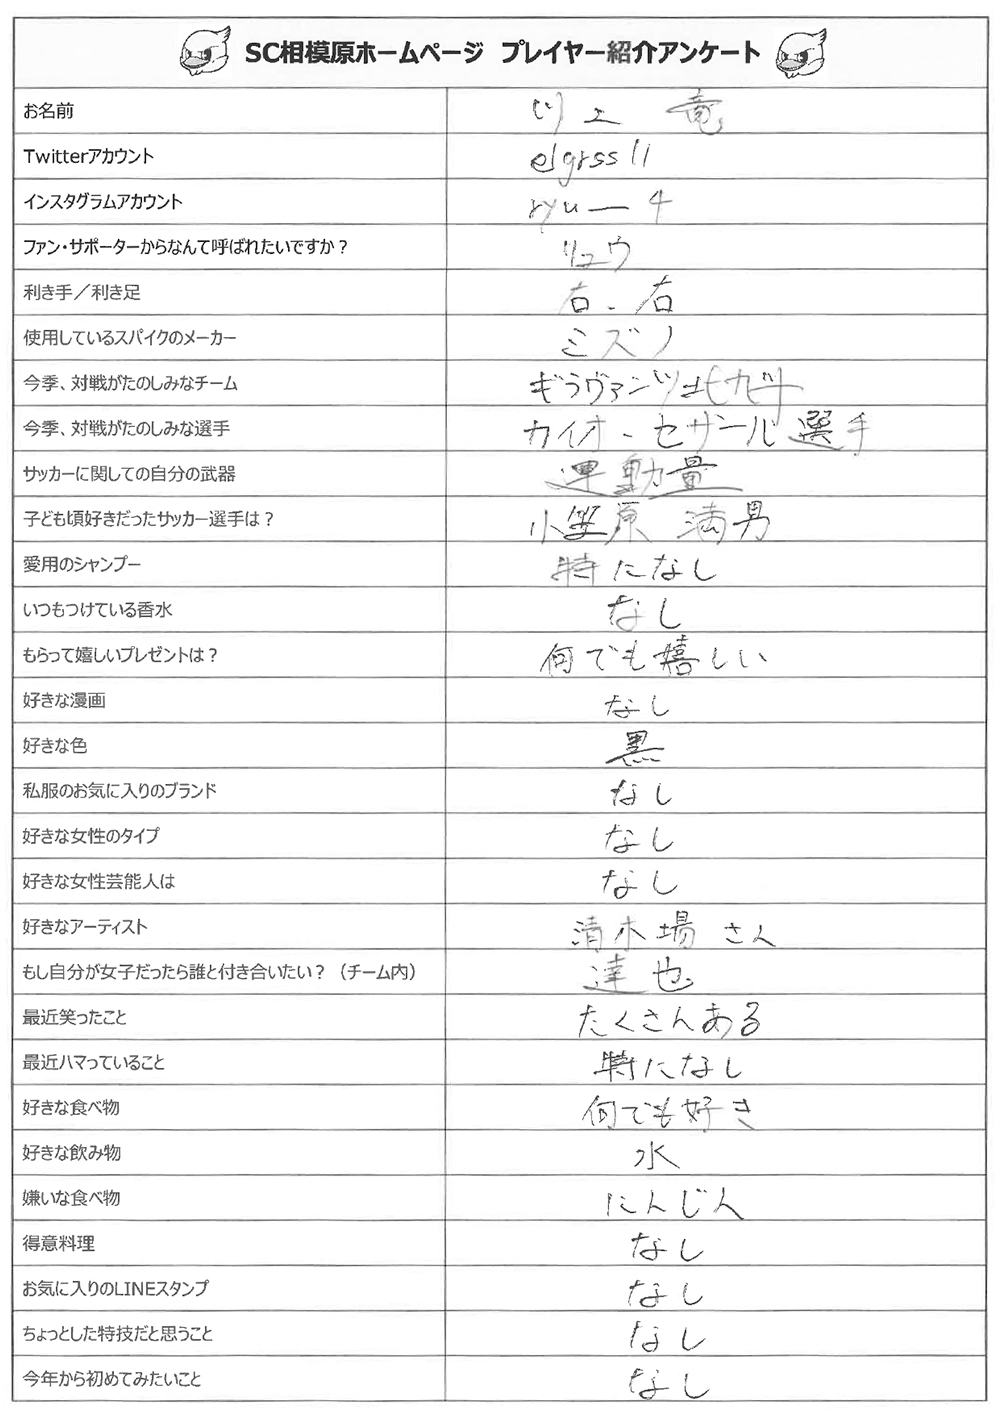 SC相模原ホームページ プレイヤー紹介アンケート
お名前 川上 竜
Twitterアカウント elgrss11
インスタグラムアカウント ryu—4
ファン・サポーターからなんて呼ばれたいですか? リュウ
利き手/利き足 右.右
使用しているスパイクのメーカー ミズノ
今季、対戦がたのしみなチーム ギラヴァンツ北九州
今季、対戦がたのしみな選手 カイオ・セザール選手
サッカーに関しての自分の武器 運動量
子ども頃好きだったサッカー選手は? 小笠原 満男
愛用のシャンプー 特になし
いつもつけている香水 なし
もらって嬉しいプレゼントは? 何でも嬉しい
好きな漫画 なし
好きな色 黒
私服のお気に入りのブランド なし
好きな女性のタイプ なし
好きな女性芸能人は なし
好きなアーティスト 清木場さん
もし自分が女子だったら誰と付き合いたい?(チーム内) 達也
最近笑ったこと たくさんある
最近ハマっていること 特になし
好きな食べ物 何でも好き
好きな飲み物 水
嫌いな食べ物 にんじん
得意料理 なし
お気に入りのLINEスタンプ なし
ちょっとした特技だと思うこと なし
今年から初めてみたいこと なし